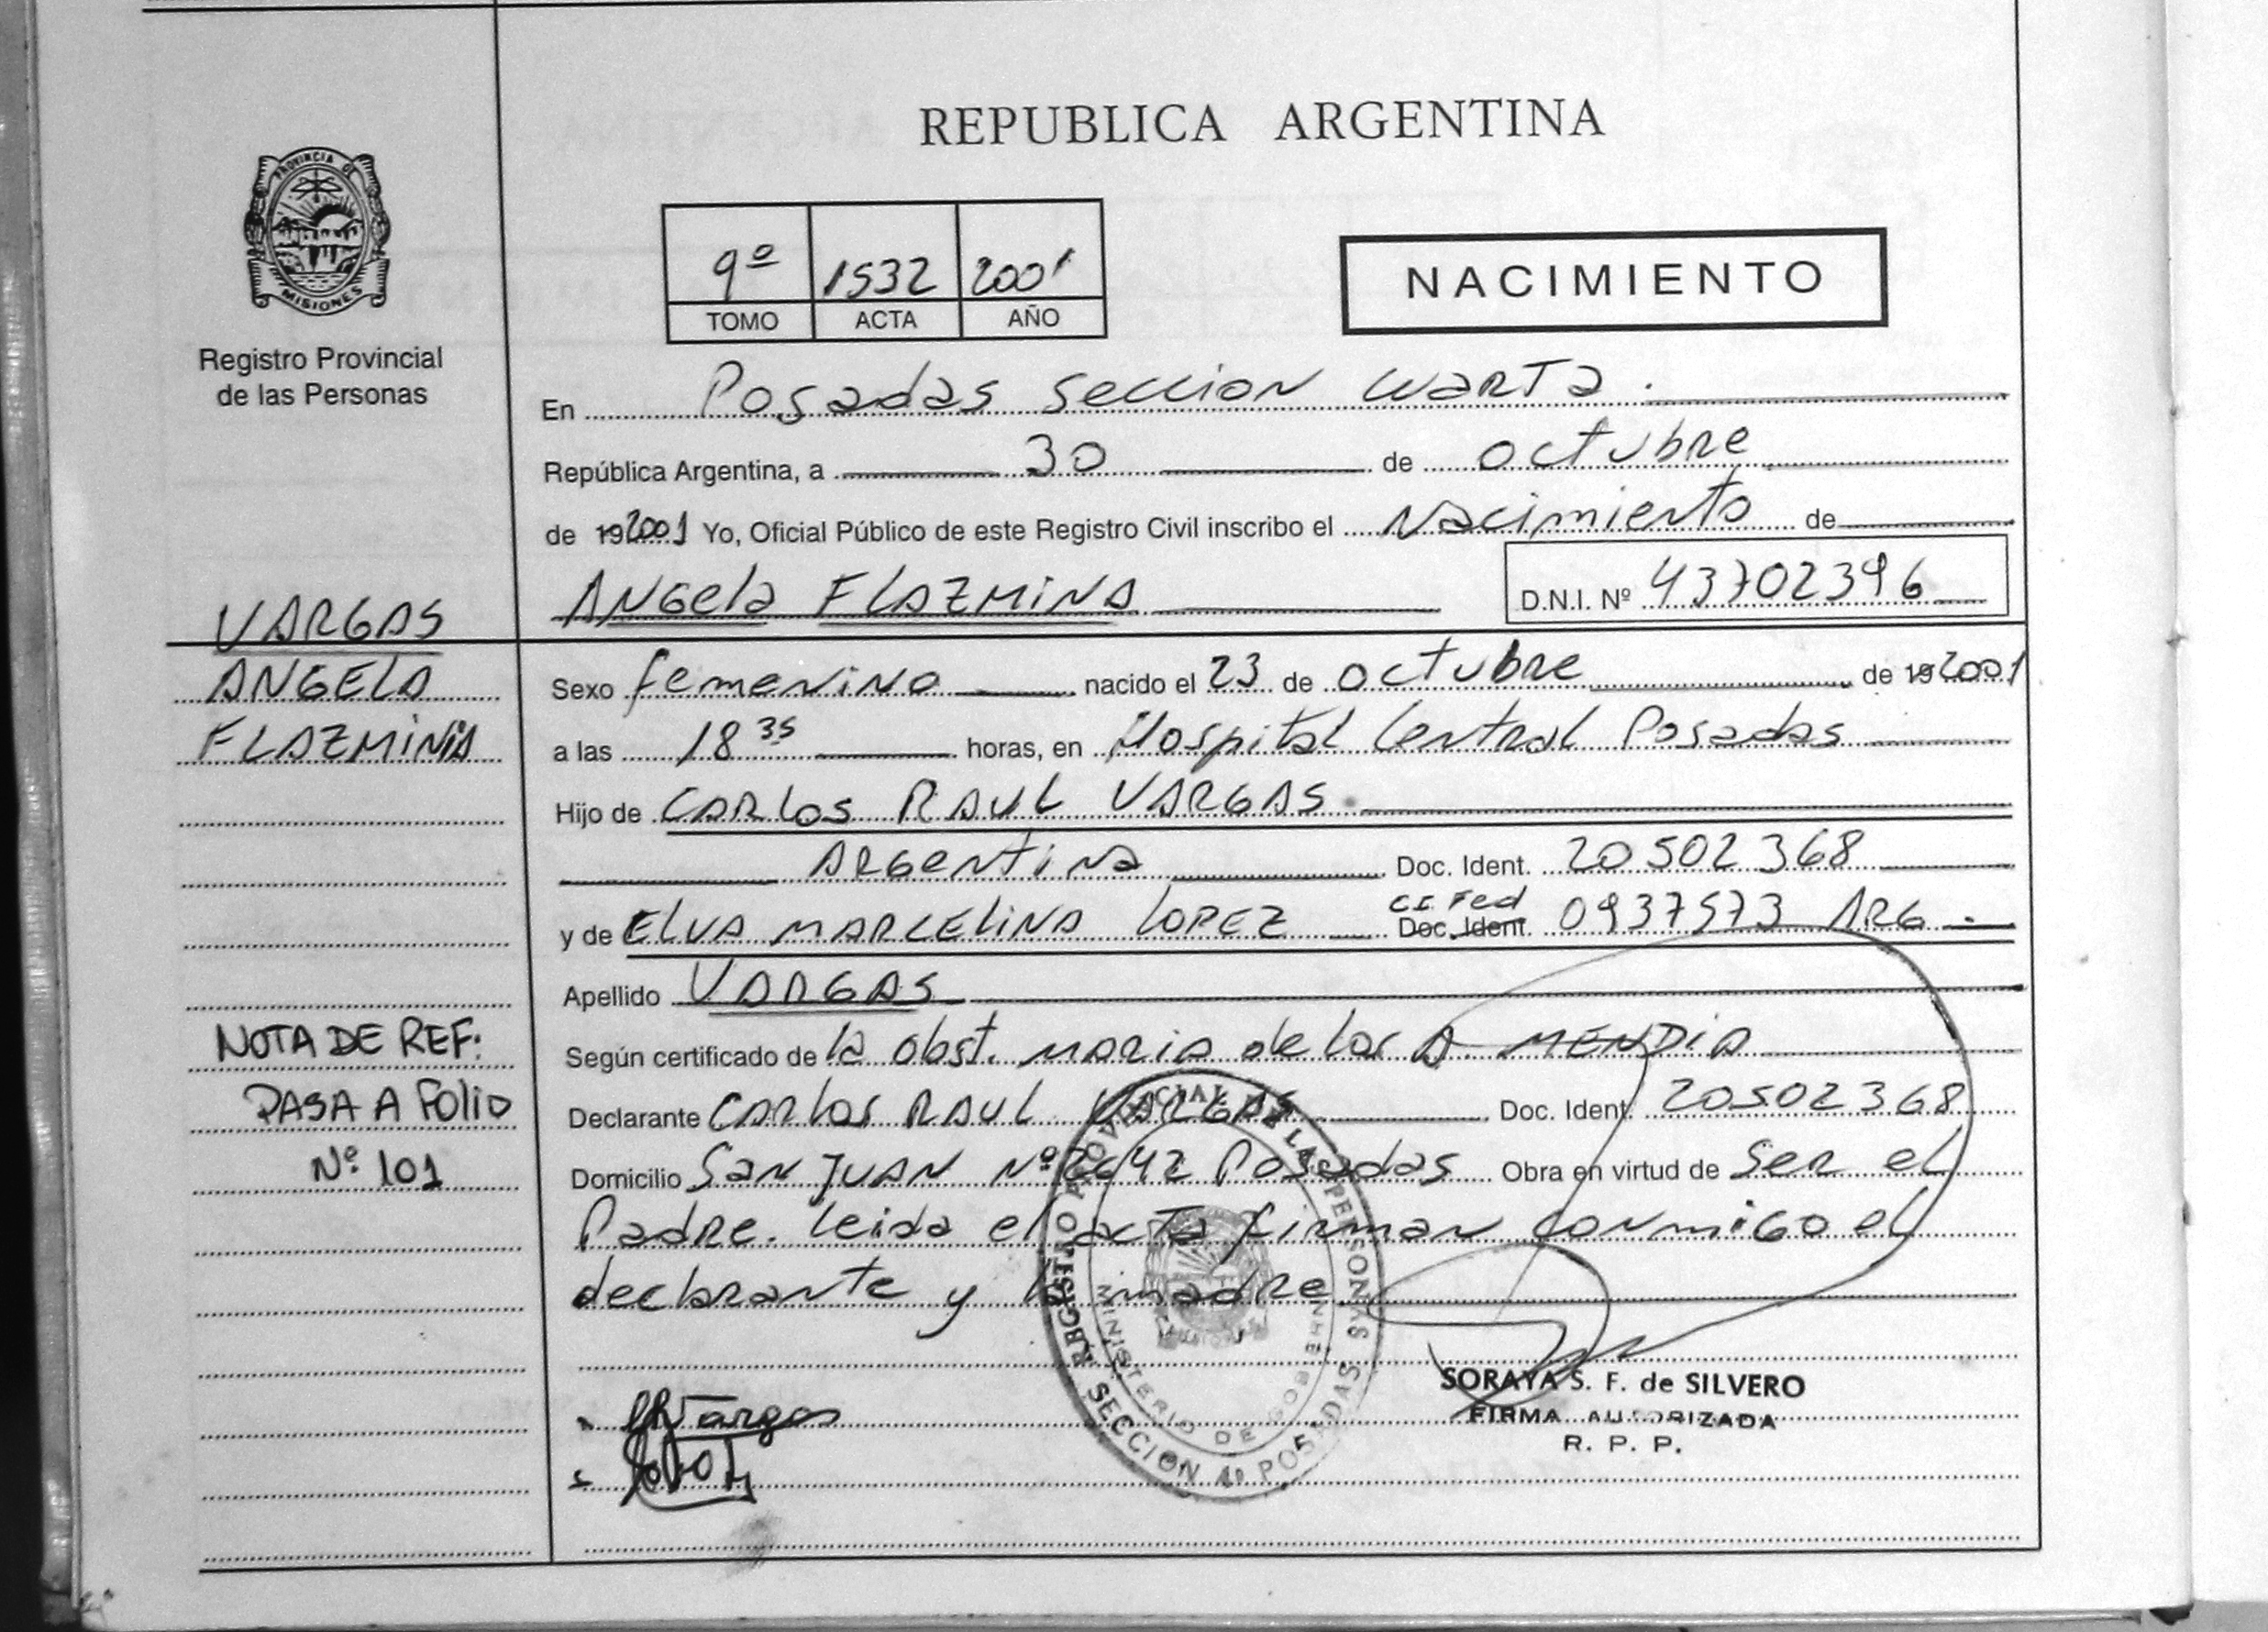 REPUBLICA ARGENTINA
PROVINCIA DE
MISIONES
Registro Provincial
de las Personas
9º 1532 2001
TOMO ACTA AÑO
NACIMIENTO
En Posadas Seccion cuarta.
República Argentina, a 30 de octubre
de 192001 Yo, Oficial Público de este Registro Civil inscribo el Nacimiento de
ANGela FLAZMINA D.N.I. Nº 43702396
VARGAS
ANGELA
FLAZMINIA
Sexo femenino nacido el 23 de octubre de 192001
a las 18 35 horas, en Hospital Central Posadas
Hijo de CARLOS RAUL VARGAS
ARGentina Doc. Ident. 20502368
y de ELVA MARCELINA LOPEZ C.I. Fed Doc. Ident. 0937573 ARG.
Apellido VARGAS
Según certificado de la obst. MARIA de los A. MENDIA
Declarante CARlos RAUL VARGAS Doc. Ident. 20502368
Domicilio SAN JUAN Nº 2642 Posadas Obra en virtud de Ser el
Padre. leida el acta firman conmigo el
declarante y la madre
NOTA DE REF:
PASA A FOLIO
Nº 101
REGISTRO PROVINCIAL DE LAS PERSONAS
MINISTERIO DE GOBIERNO
SECCION 4ª POSADAS
Vargas
SORAYA S. F. de SILVERO
FIRMA AUTORIZADA
R. P. P.